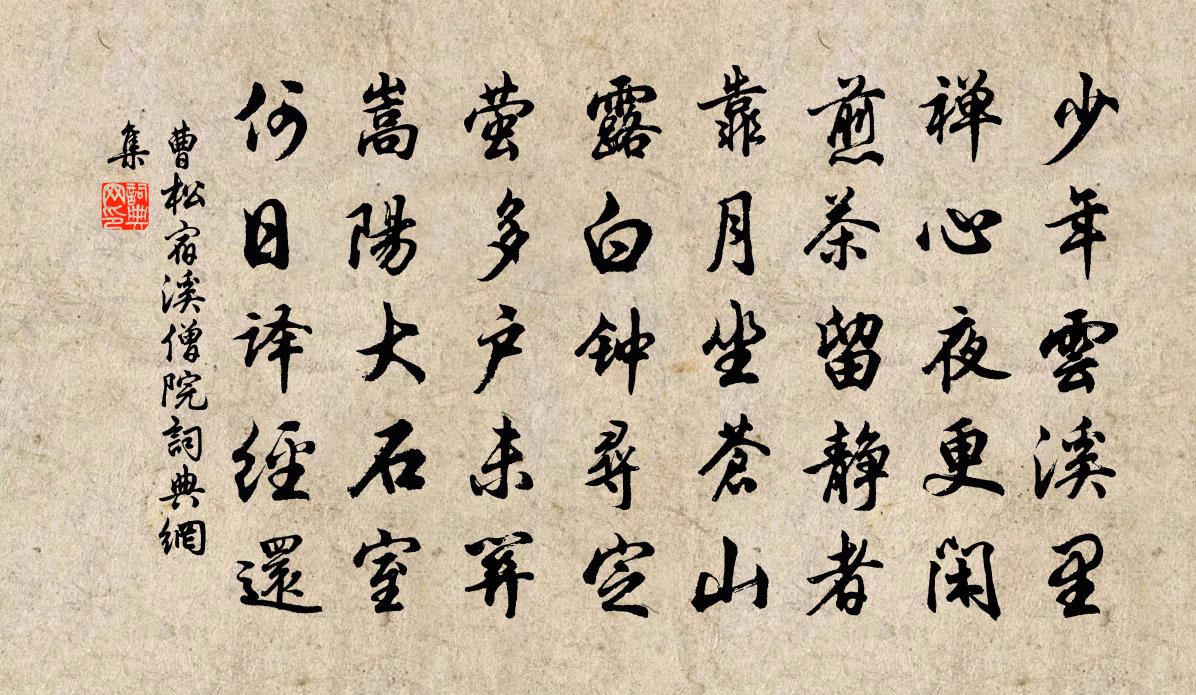 少年雲溪里
禅心夜更闲
煎茶留静者
靠月坐蒼山
露白钟尋定
萤多户未関
嵩陽大石室
何日译經還
曹松宿溪僧院詞典網
集
詞典
网印